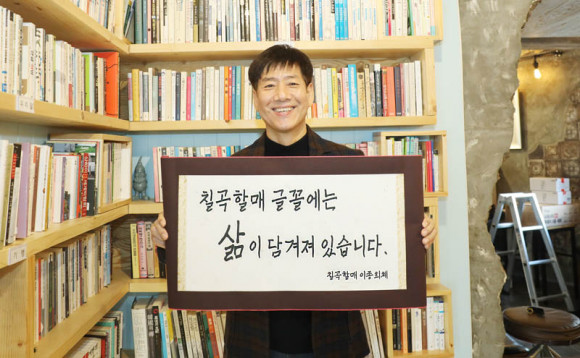 칠곡할매 글꼴에는
삶이 담겨져 있습니다.
칠곡할매 이종희체